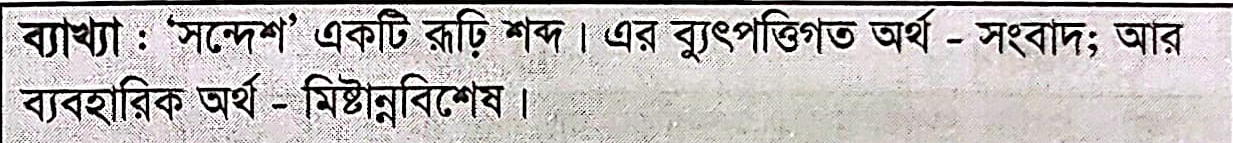 ব্যাখ্যা : 'সন্দেশ' একটি রূঢ়ি শব্দ। এর ব্যুৎপত্তিগত অর্থ - সংবাদ; আর
ব্যবহারিক অর্থ - মিষ্টান্নবিশেষ।